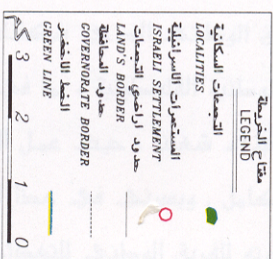 مفتاح الخريطة
LEGEND
التجمعات السكانية
LOCALITIES
المستعمرات الاسرائيلية
ISRAELI SETTLEMENT
حدود اراضي التجمعات
LAND'S BORDER
حدود المحافظة
GOVERNORATE BORDER
الخط الاخضر
GREEN LINE
3 2 1 0
كم